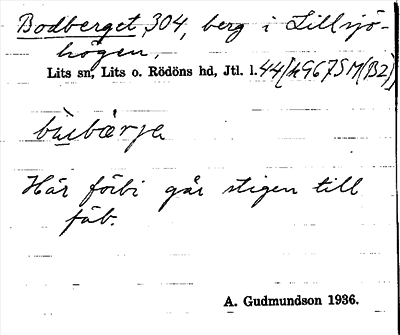 Bodberget, 304, berg i Lillsjö-
högen,
Lits sn, Lits o. Rödöns hd, Jtl. l. 44
Här förbi går stigen till
fäb.
A. Gudmundson 1936.